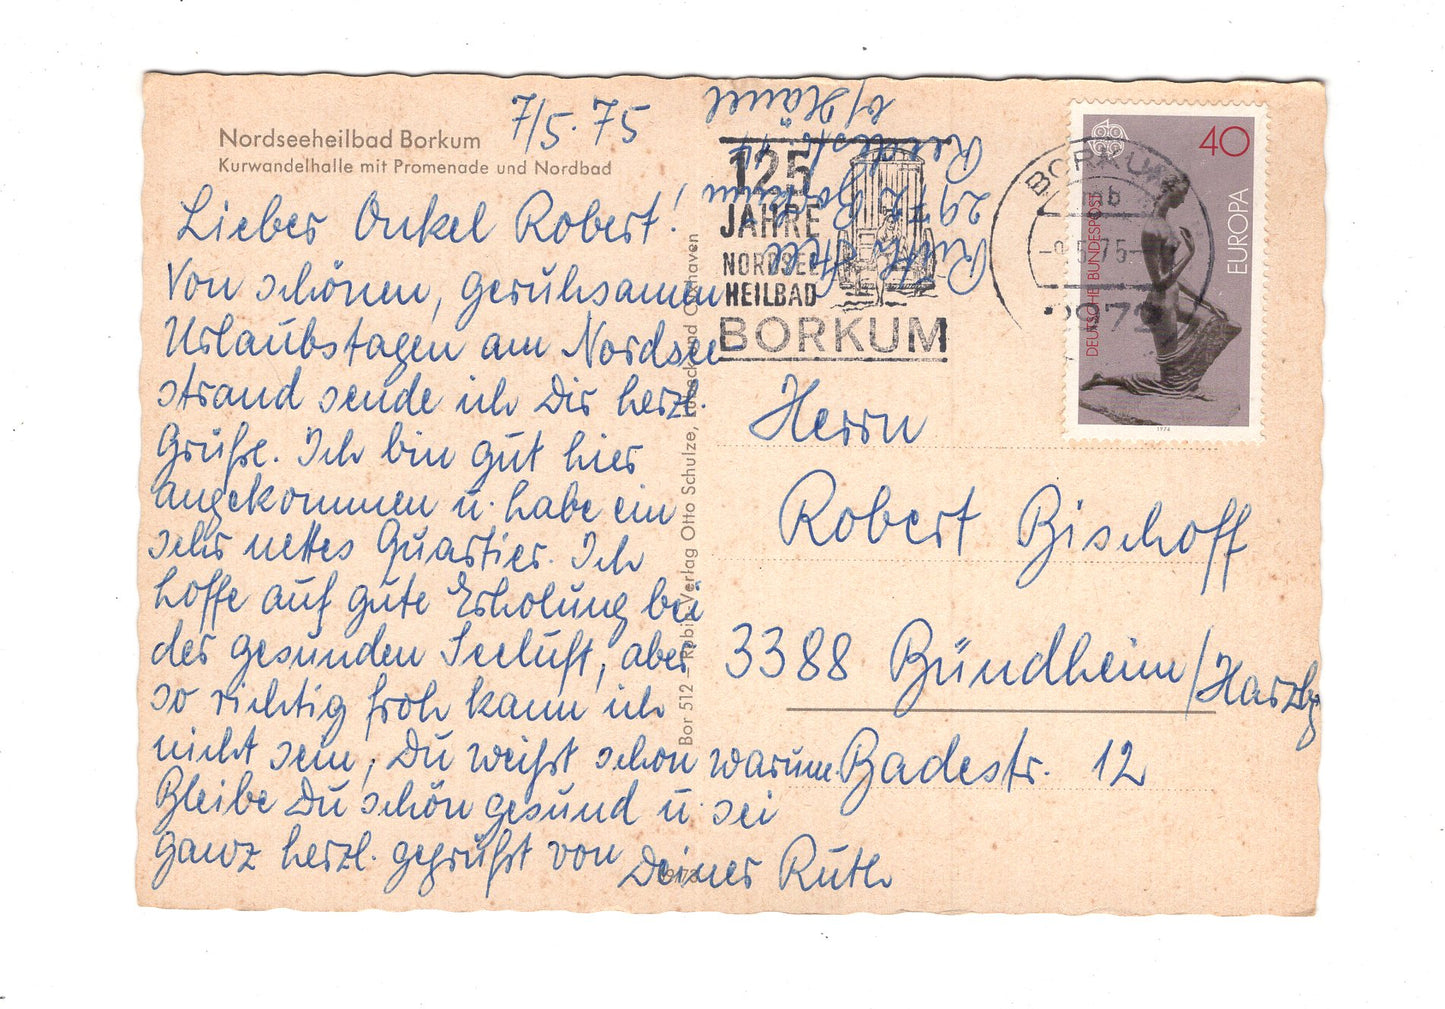 Nordseeheilbad Borkum
Kurwandelhalle mit Promenade und Nordbad
7/5.75
Lieber Onkel Robert!
Von schönen, geruhsamen
Urlaubstagen am Nordsee
strand sende ich Dir herzl.
Grüße. Ich bin gut hier
angekommen u. habe ein
sehr nettes Quartier. Ich
hoffe auf gute Erholung bei
der gesunden Seeluft, aber
so richtig froh kann ich
nicht sein, Du weißt schon warum.
Bleibe Du schön gesund u. sei
ganz herzl. gegrüßt von Deiner Ruth
Bor 512 – Robin-Verlag Otto Schulze, Lübeck und Cuxhaven
Ruth
2972 Borkum
b/Häuel
125
JAHRE
NORDSEE
HEILBAD
BORKUM
BORKUM
b
5.75
2972
40
DEUTSCHE BUNDESPOST
EUROPA
1974
Herrn
Robert Bischoff
3388 Bündheim/Harzbg
Badestr. 12